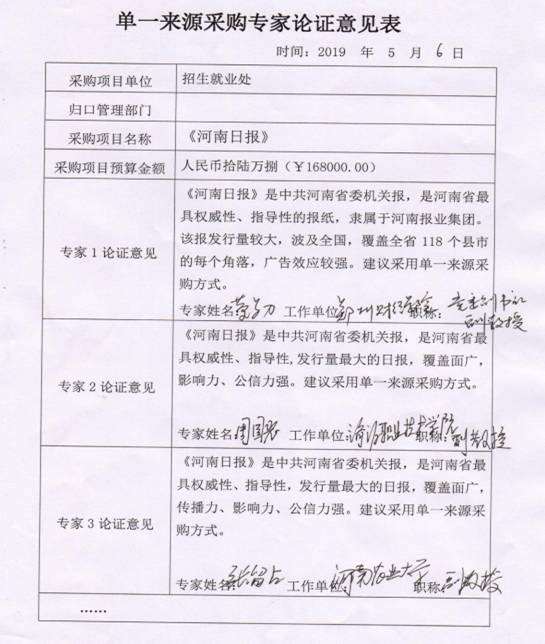 单一来源采购专家论证意见表
时间：2019 年 5 月 6 日
采购项目单位 招生就业处
归口管理部门
采购项目名称 《河南日报》
采购项目预算金额 人民币拾陆万捌（￥168000.00）
专家 1 论证意见
《河南日报》是中共河南省委机关报，是河南省最
具权威性、指导性的报纸，隶属于河南报业集团。
该报发行量较大，波及全国，覆盖全省 118 个县市
的每个角落，广告效应较强。建议采用单一来源采
购方式。
专家姓名： 工作单位： 职称：
副教授
专家 2 论证意见
《河南日报》是中共河南省委机关报，是河南省最
具权威性、指导性,发行量最大的日报，覆盖面广，
影响力、公信力强。建议采用单一来源采购方式。
专家姓名： 工作单位： 职业技术学院 职称：副教授
专家 3 论证意见
《河南日报》是中共河南省委机关报，是河南省最
具权威性、指导性，发行量最大的日报，覆盖面广，
传播力、影响力、公信力强。建议采用单一来源采
购方式。
专家姓名：张留占 工作单位：河南农业大学 职称：副教授
……